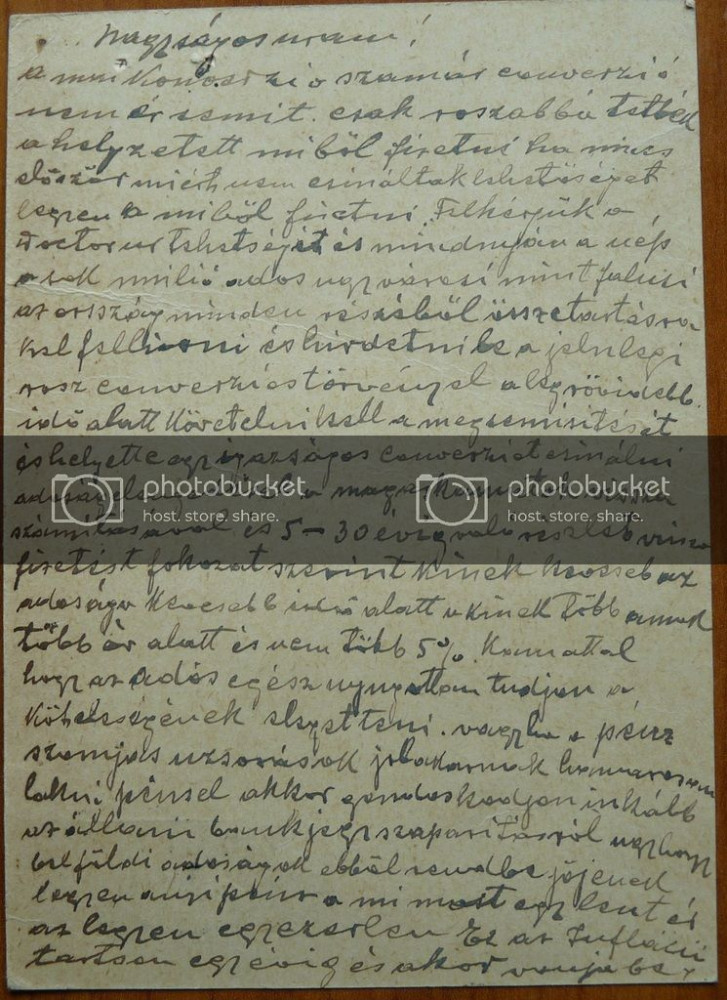 Nagyságos uram!
a mai Konverzio szamár converzió
nem ér semit. csak roszabbá tették
a helyzetett miböl fizetni ha nincs
elöször miért nem csináltak lehetöséget
legyen a miböl fizetni. Felkérjük a
Doctor ur tehetségit és mindnyájan a nép
a sok milió ados ugy városi mint falusi
az ország minden részéböl összetartásra
kel fellhivni és hirdetni le a jelnlegi
rosz converziós törvényel a legrövidebb
idö alatt követelni kell a megsemisitését
és helyette egy igazságos converziot csinálni
adoság a magas kamatok vissza
számitásával és 5-30 évig való részlet vissza
fizetést fokozat szerint kinek kevesseb az
adosága kevesebb idö alatt kinek több annak
több év alatt és nem több 5% Kamattal
hogy az adós egész nyugottan tudjon a
kötelességének elegettenni. vagy ha a pénz
szomjas uzsorások jolakarnak hamarosan
lakni pénsel akkor gondoskodjon inkább
az állami bankjegy szaporitásról ugy hogy
belföldi adoságok ebböl rendbe jöjenek
legyen anyi pénz a mi most egy lent és
az legyen egyezerlen Ez az Infláció
tartson egy évig és akor vonja be.
photobucket
host. store. share.
photobucket
host. store. share.